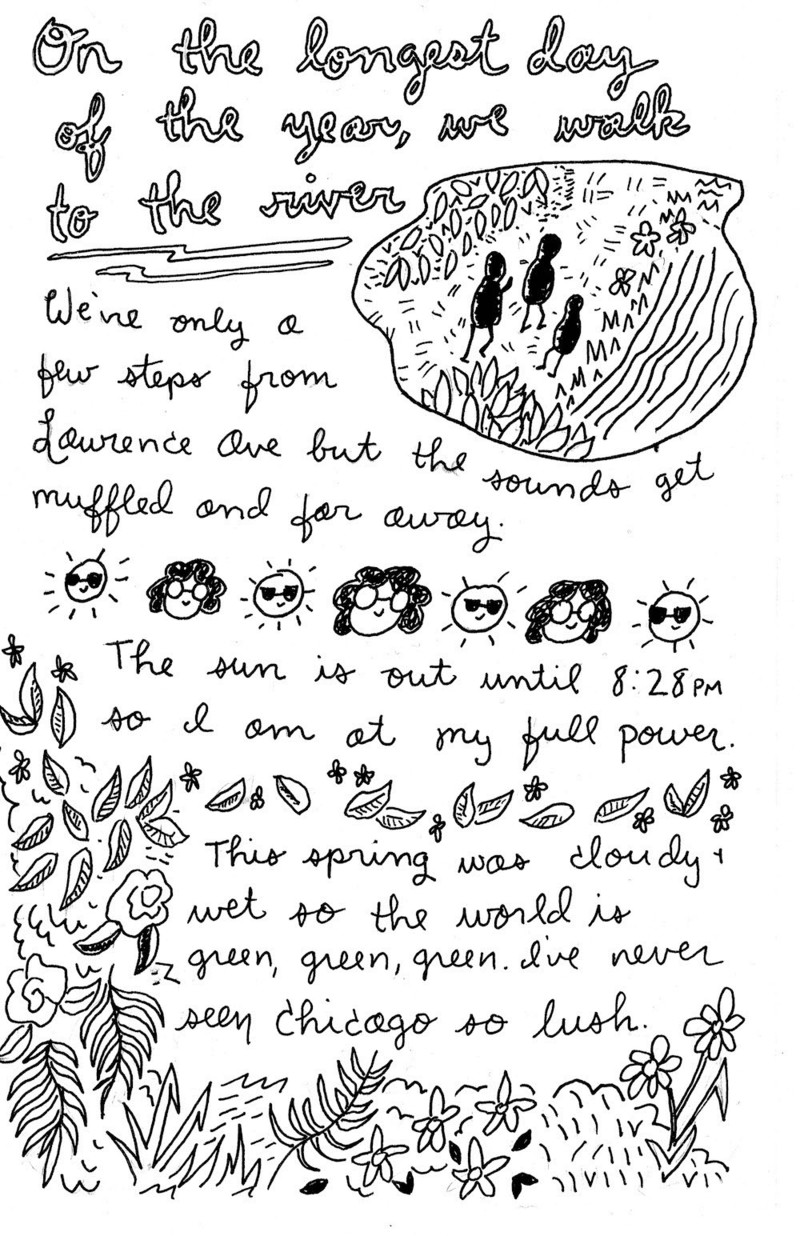 On the longest day
of the year, we walk
to the river
We're only a
few steps from
Lawrence Ave but the sounds get
muffled and far away.
The sun is out until 8:28PM
so I am at my full power.
This spring was cloudy +
wet so the world is
green, green, green. I've never
seen Chicago so lush.